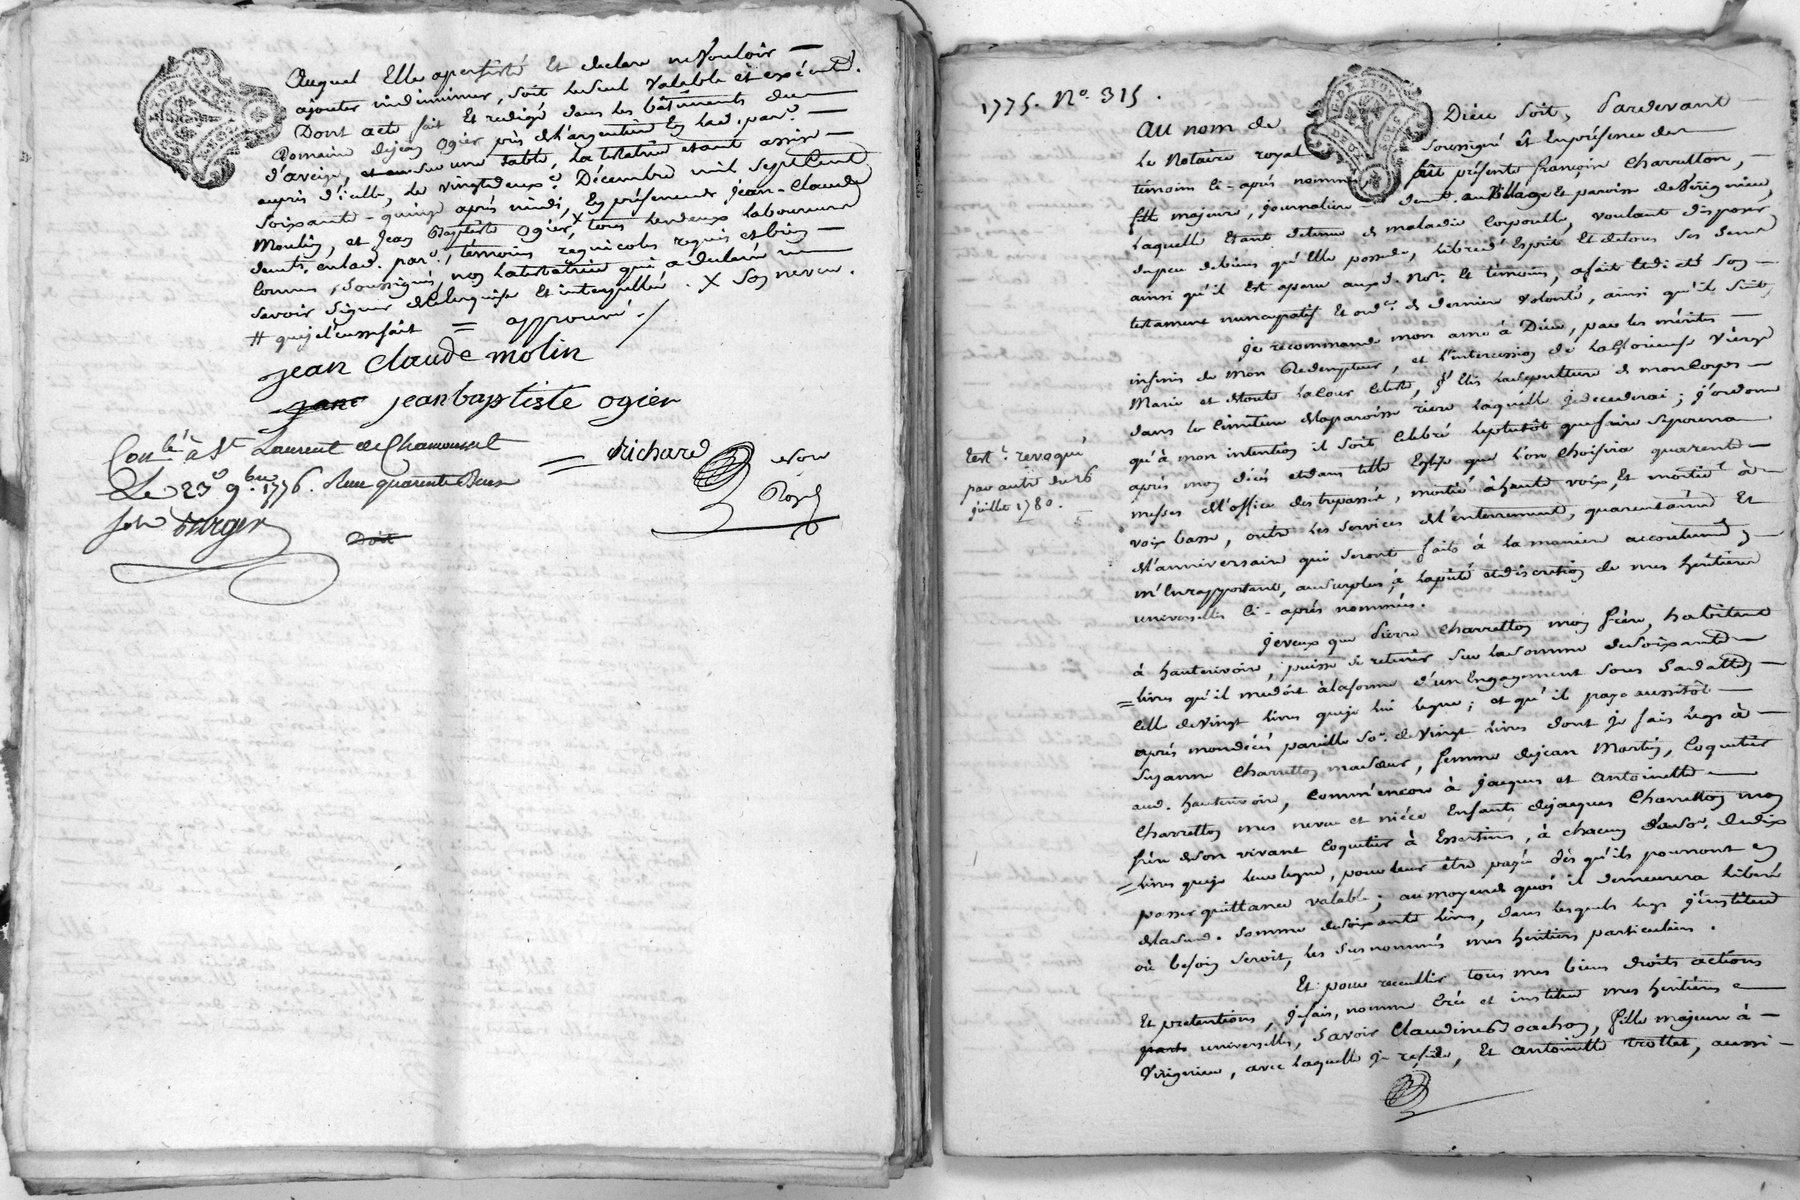 Auquel Elle a persisté Et declare ne Vouloir
ajouter ni diminuer, soit le seul valable et exécuté.
Dont acte fait Et redigé dans les bâtiments du
Domaine de jean Ogier près de l'argentière En lad. par.e
d'aveize, et sur une table, la testatrice etant assise
auprès d'icelle, le vingtdeux.e Décembre mil sept Cent
Soixante-quinze après midi, En présence de jean-Claude
Moulin, et Jean Baptiste Ogier, X tous les deux laboureurs
demts. en lad. par.e, témoins regnicoles requis et bien
Connus, soussignés, non la testatrice qui a declaré ne
savoir signer de ce enquise Et interpellée. X Son neveu.
# que j'eusse fait = approuvé. /
jean claude molin
jeanbaptiste ogier
Con.lé à St Laurent de Chamousset
Le 23.e 9.bre 1776. Reçu quarente deux
sols
= Richard
Not.re
Royal
Doit
1775. No. 315.
Au nom de Dieu soit, Pardevant
Le Notaire royal soussigné et En présence des
témoins ci-après nommés fut présente françoise Charretton,
fille majeure, journalière demt. au Village Et paroisse de Virigneux,
Laquelle Etant detenue de maladie corporelle, voulant disposer
du peu de biens qu'Elle possede, libre d'Esprit Et de tous ses sens
ainsi qu'il Est aparu aux d. Not.re Et témoins, a fait Et dicté son
testament nuncupatif Et ord.ce de derniere volonté, ainsi qu'il suit,
Je recommande mon ame à Dieu, par les mérites
infinis de Mon Redempteur, et l'intercession de la Glorieuse Vierge
Marie et de toute la Cour Celeste, j'Elis la sepulture de mon Corps
dans le Cimetiere de la paroisse riere laquelle je decederai; j'ordonne
qu'à mon intention il soit Celebré le plutôt que faire se pourra
après mon décès et dans telle Eglise que l'on Choisira quarente
messes de l'office des trepassés, moitié à haute voix, Et moitié à
voix basse, outre les services de l'enterrement, quarentaine Et
de l'anniversaire qui seront faits à la maniere accoutumée,
m'En rapportant, au surplus, à la pieté et discretion de mes héritieres
universelles Ci-après nommées.
Test.t revoqué
par autre du 26
juillet 1780.
Je veux que Pierre Charretton mon frere, habitant
à hauterivoire, puisse se retenir sur la somme de soixante
= livres qu'il me doit à la forme d'un Engagement sous sa datte,
Celle de Vingt livres que je lui legue; et qu'il paye aussitôt
après mon décès pareille So.e de Vingt livres dont je fais legs à
Suzanne Charretton ma soeur, femme de jean Martin, Coquetier
aud. hauterivoire, Comm'encore à jacques et antoinette
Charretton mes neveu et niéce Enfants de jacques Charretton mon
frere de son vivant Coquetier à Essertines, à chacun d'eux So.e de dix
= livres que je leur legue, pour leur être payée dès qu'ils pourront en
passer quittance valable; au moyen de quoi il demeurera libéré
de la susd. somme de soixante livres, dans lesquels legs j'institue
où besoin seroit, les susnommés mes heritiers particuliers.
Et pour recueillir tous mes biens droits actions
Et pretentions, je fais, nomme Crée et institue mes héritieres
universelles, savoir Claudine, fille majeure à
Virigneux, avec laquelle je reside, Et antoinette trottet, aussi